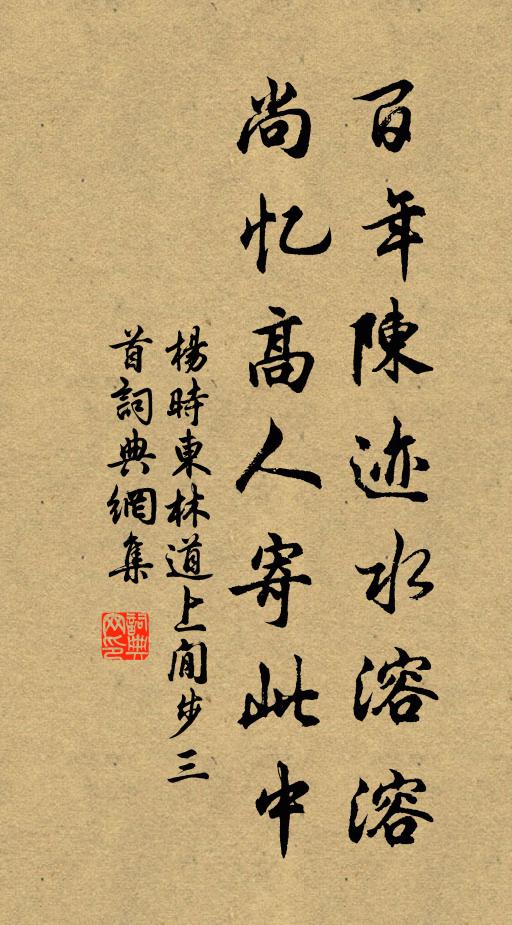 百年陳迹水溶溶
尚忆高人寄此中
楊時東林道上閒步三
首詞典網集
詞典網印